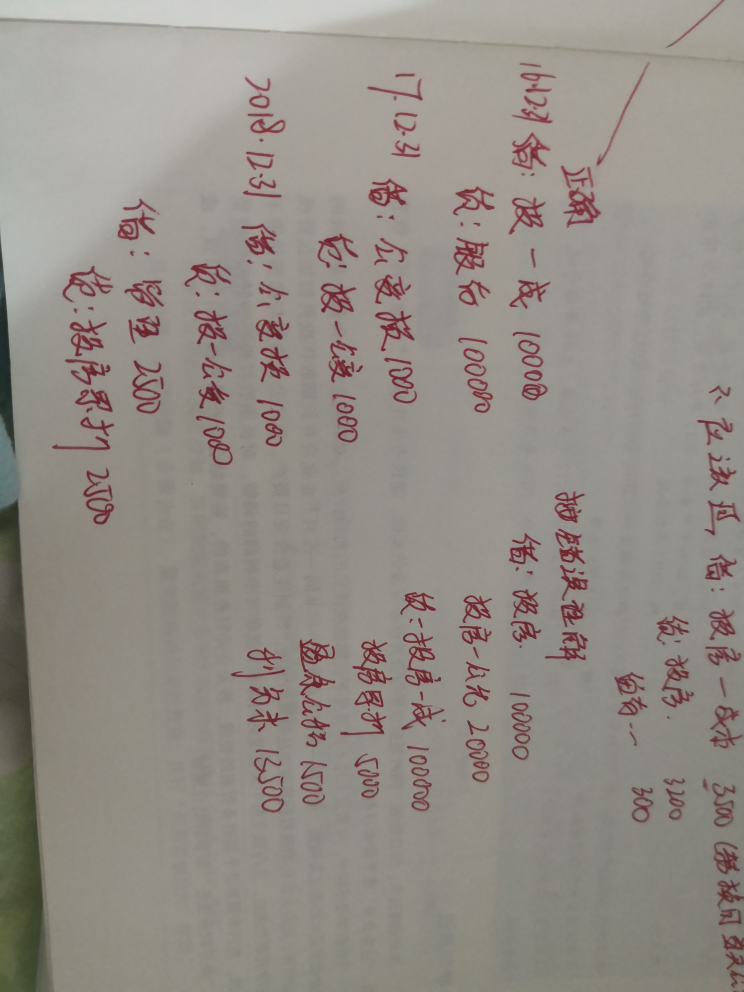 不应该血, 借: 投房一成本 3500
贷: 投房. 3200
300
正确
16.12.31 借: 投一成 100000
贷: 股后 100000
17.12.31 借: 公变投 1000
贷: 投一公变 1000
2018.12.31 借: 公变投 1000
贷: 投一公变 1000
借: 留 2500
贷: 投房累折 2500
按错误理解
借: 投房. 100000
投房一公允 20000
贷: 投房一成 100000
投房累折 5000
盈余公积 1500
利分未 13500